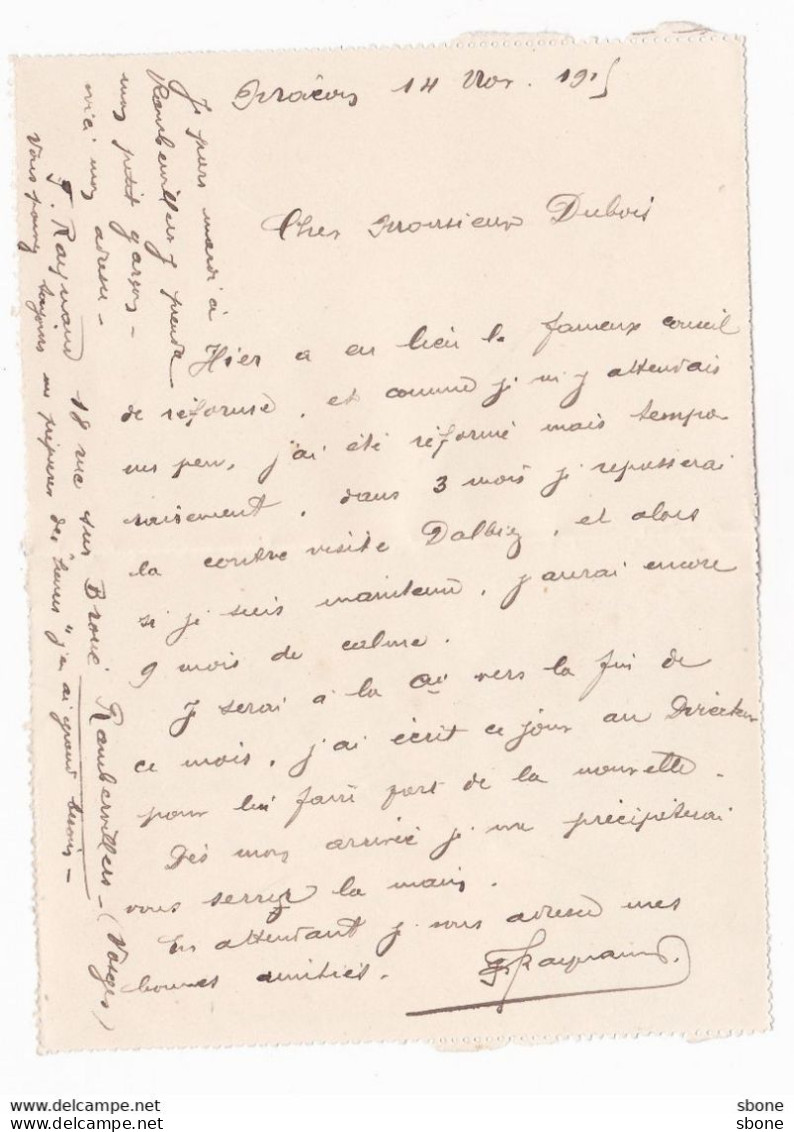 Mâcon 14 Nov. 1915
Cher Monsieur Dubois
Hier a eu lieu le fameux conseil
de réforme, et comme je m'y attendais
un peu, j'ai été réformé mais tempo-
rairement, dans 3 mois je repasserai
la contre visite Dalbiez, et alors
si je suis maintenu, j'aurai encore
9 mois de calme.
Je serai à la Cie vers la fin de
ce mois, j'ai écrit ce jour au Directeur
pour lui faire part de la nouvelle.
Dès mon arrivée je me précipiterai
vous serrer la main.
En attendant je vous adresse mes
bonnes amitiés.
F. Raynaud.
Je pars mardi à
Rambervillers y prendre
mon petit garçon -
voici mon adresse -
F. Raynaud 18 rue sur Broué Rambervillers - (Vosges)
Vous pouvez toujours me préparer des "heures" j'en ai grand besoin -
sbone
sbone